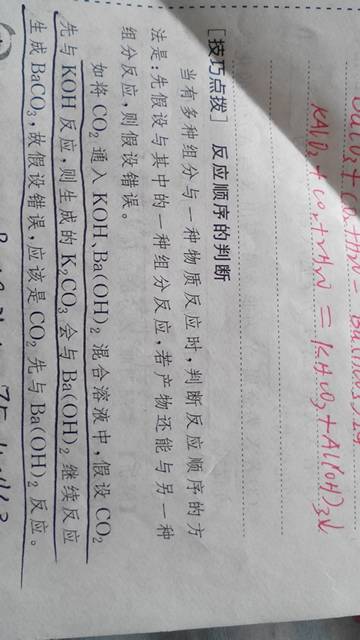 KAlO₂ + CO₂ + 2H₂O = KHCO₃ + Al(OH)₃↓
[技巧点拨] 反应顺序的判断
当有多种组分与一种物质反应时,判断反应顺序的方
法是:先假设与其中的一种组分反应,若产物还能与另一种
组分反应,则假设错误。
如将 CO₂ 通入 KOH、Ba(OH)₂ 混合溶液中,假设 CO₂
先与 KOH 反应,则生成的 K₂CO₃ 会与 Ba(OH)₂ 继续反应
生成 BaCO₃,故假设错误,应该是 CO₂ 先与 Ba(OH)₂ 反应。